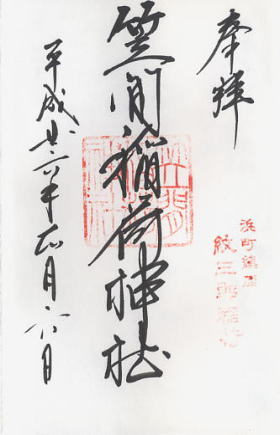 奉拝
浜町鎮座
紋三郎稲荷
笠间稲荷神社
平成廿六年正月六日